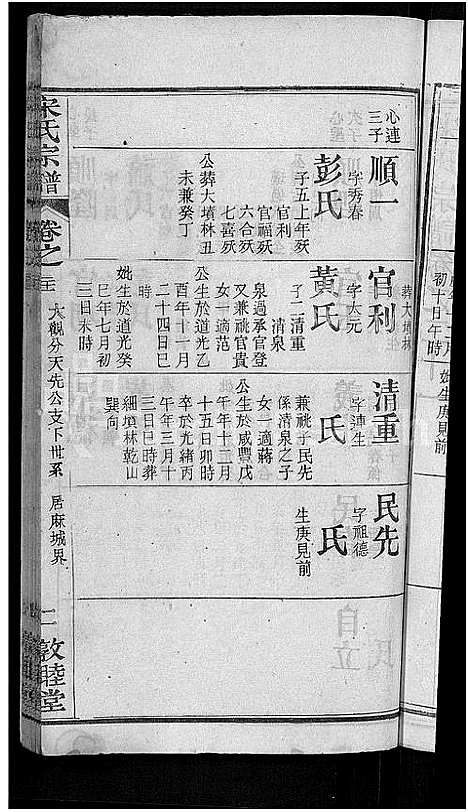 葬大墳林
初十日午時
姚生庚見前
心連
三子
順一
字秀春
彭氏
子五上年殀
官利
官福殀
六合殀
七喜殀
公葬大墳林丑
未兼癸丁
官利
字大元
黃氏
子二清重
清泉
泉過承官登
又兼祧官貴
女一適范
公生於道光乙
酉年十一月
二十四日巳
時
姚生於道光癸
巳年七月初
三日未時
清重
字連生
氏
兼祧子民先
係清泉之子
女一適蔣
公生於咸豐戊
午年十二月
十五日卯時
卒於光緒丙
午年三月十
三日巳時葬
細墳林乾山
巽向
民先
字祖德
氏
生庚見前
宋氏宗譜
卷之
大觀分天先公支下世系
居麻城界
二
敦睦堂
自立
氏